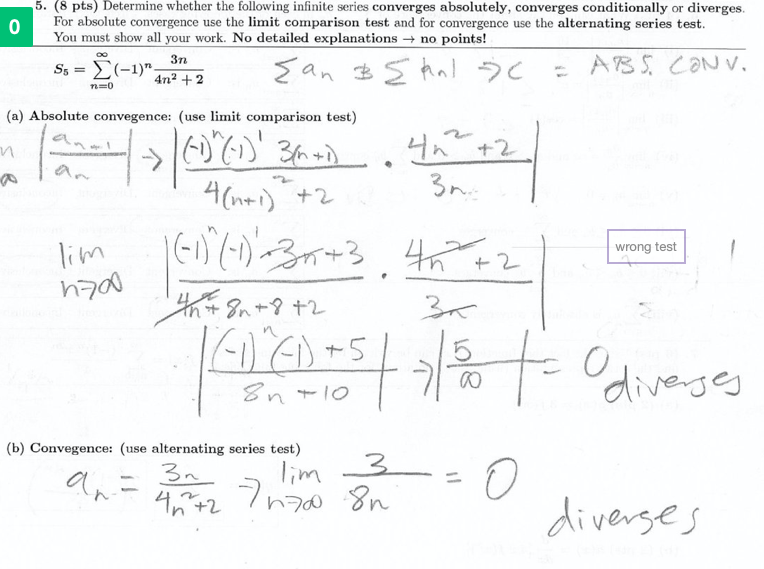 0
5. (8 pts) Determine whether the following infinite series converges absolutely, converges conditionally or diverges.
For absolute convergence use the limit comparison test and for convergence use the alternating series test.
You must show all your work. No detailed explanations → no points!
S₅ = ∑_{n=0}^{∞} (-1)ⁿ 3n / (4n² + 2)
∑ an & ∑ |an| → C = ABS. CONV.
(a) Absolute convegence: (use limit comparison test)
n ∞ |a_{n+1} / a_n| → |(-1)ⁿ(-1)¹ 3(n+1) / (4(n+1)² + 2) · (4n² + 2) / 3n|
wrong test
lim n→∞ |(-1)ⁿ(-1)¹ · 3n + 3 / (4n² + 8n + 8 + 2) · (4n² + 2) / 3n|
|(-1)ⁿ(-1) + 5 / (8n + 10)| → |5 / ∞| = 0 diverges
(b) Convegence: (use alternating series test)
a_n = 3n / (4n² + 2) → lim n→∞ 3 / 8n = 0
diverges